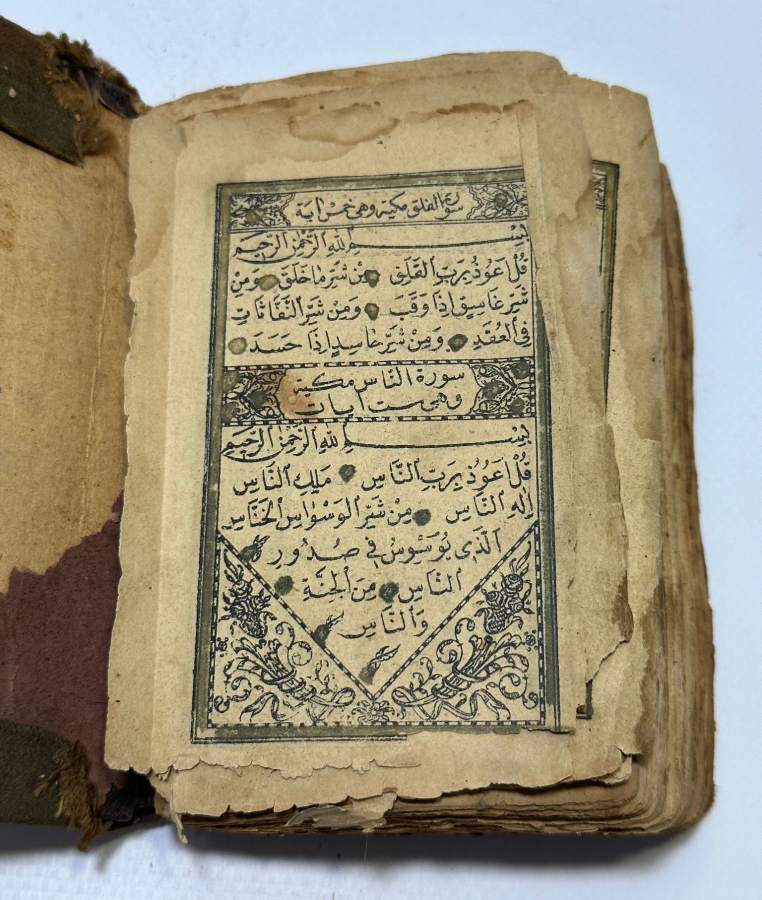 سورة الفلق مكية وهى خمس اية
بسم الله الرحمن الرحيم
قُلْ اَعُوذُ بِرَبِّ الفَلَقِ مِنْ شَرِّ مَا خَلَقَ وَمِنْ
شَرِّ غَاسِقٍ اِذَا وَقَبَ وَمِنْ شَرِّ النَّفَّاثَاتِ
فِي العُقَدِ وَمِنْ شَرِّ حَاسِدٍ اِذَا حَسَدَ
سورة الناس مكية
وهى ست ايات
بسم الله الرحمن الرحيم
قُلْ اَعُوذُ بِرَبِّ النَّاسِ مَلِكِ النَّاسِ
اِلٰهِ النَّاسِ مِنْ شَرِّ الوَسْوَاسِ الخَنَّاسِ
الَّذِى يُوَسْوِسُ فِي صُدُورِ
النَّاسِ مِنَ الجِنَّةِ
وَالنَّاسِ